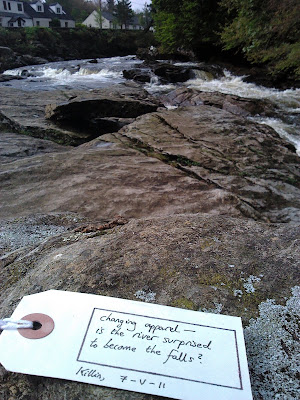 changing apparel —
is the river surprised
to become the falls?
Killin, 7-V-11